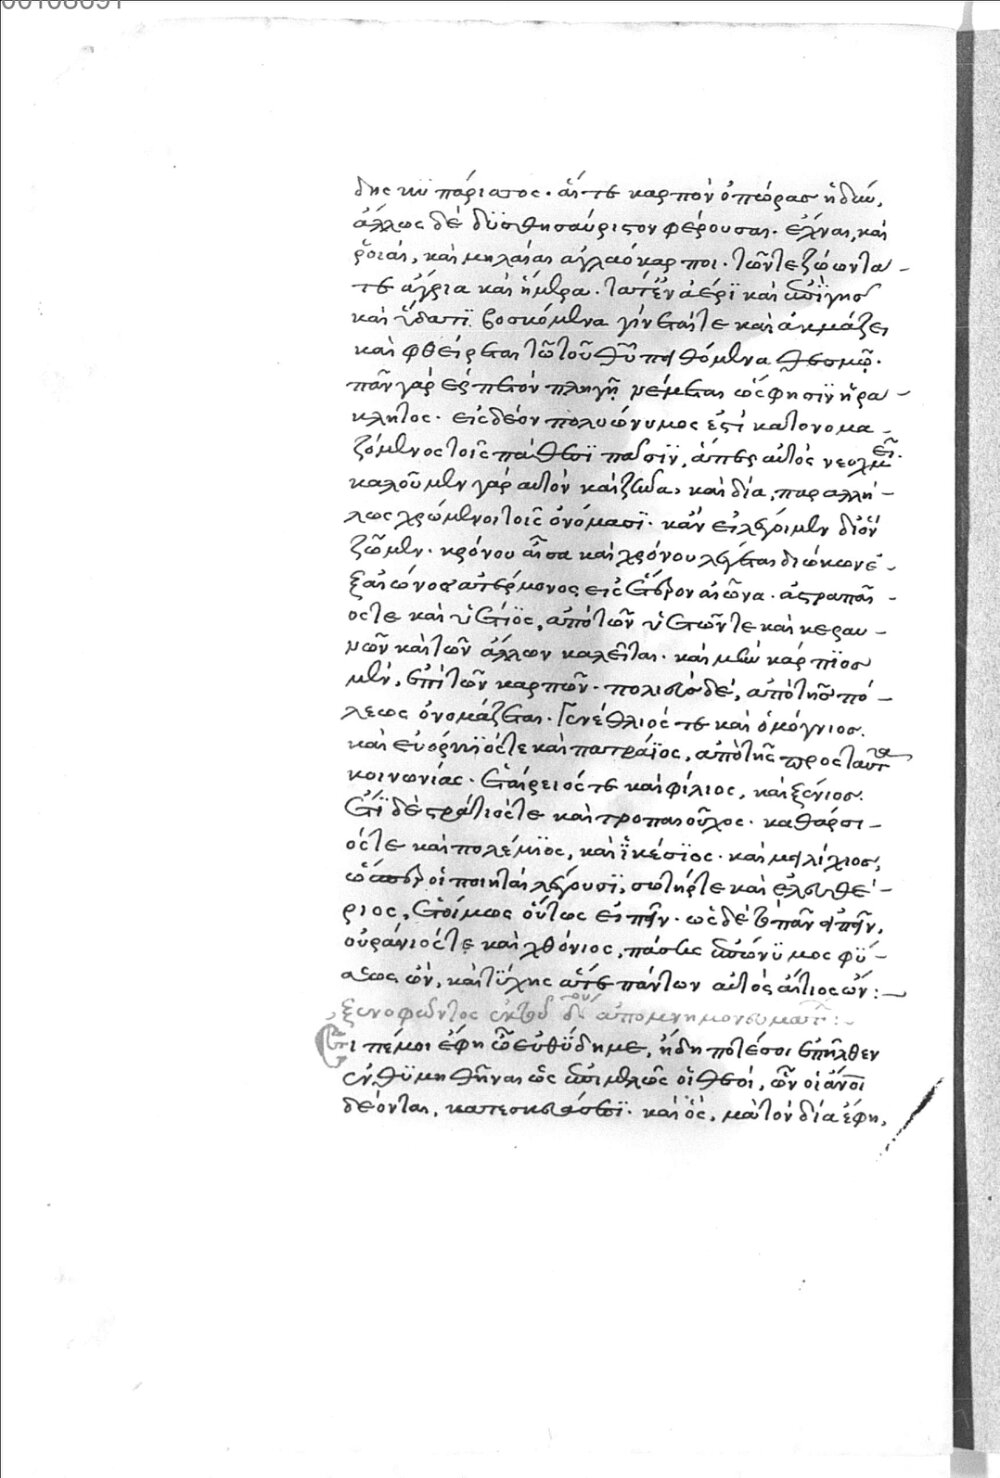 00108691
δης κυπάριστος. αἵ τε καρπὸν ὀπώρας ἡδὺν,
ἄλλως δὲ δυσθησαύριστον φέρουσαι. ὄχναι, καὶ
ῥοιαὶ, καὶ μηλαῖαι ἀγλαόκαρποι. τῶν τε ζώων τά
τε ἄγρια καὶ ἥμερα. τά τε ἐν ἀέρι καὶ ἐπὶ γῆς
καὶ ὕδατι βοσκόμενα γίνεταί τε καὶ ἀκμάζει
καὶ φθείρεται τῷ τοῦ θεοῦ πειθόμενα θεσμῷ.
πᾶν γὰρ ἑρπετὸν πληγῇ νέμεται ὥς φησιν ἡρά-
κλητος. εἷς δὲ ὢν πολυώνυμος ἐστὶ κατονομα-
ζόμενος τοῖς πάθεσι πᾶσιν, ἅπερ αὐτὸς νεοχμεῖ.
καλοῦμεν γὰρ αὐτὸν καὶ ζῆνα, καὶ δία, παραλλή-
λως χρώμενοι τοῖς ὀνόμασι. κἂν εἰ λέγοιμεν δι' ὃν
ζῶμεν. κρόνου παῖς καὶ χρόνου λέγεται διήκων ἐ-
ξ αἰῶνος ἀτέρμονος εἰς ἕτερον αἰῶνα. ἀστραπαῖ-
ός τε καὶ ὑέτιος, ἀπὸ τῶν ὑετῶν τε καὶ κεραυ-
νῶν καὶ τῶν ἄλλων καλεῖται. καὶ μὴν κάρπιος
μὲν, ἐπὶ τῶν καρπῶν. πολιεὺς δέ, ἀπὸ τῆς πό-
λεως ὀνομάζεται. γενέθλιός τε καὶ ὁμόγνιος.
κοινωνίας. ἑταίρειός τε καὶ φίλιος, καὶ ξένιος.
ἔτι δὲ στράτιός τε καὶ τροπαιοῦχος. καθάρσι-
ός τε καὶ πολέμιος, καὶ ἱκέσιος. καὶ μειλίχιος,
ὥσπερ οἱ ποιηταὶ λέγουσι, σωτήρ τε καὶ ἐλευθέ-
ριος, ἑτοίμως οὕτως εἰπεῖν. ὡς δὲ τὸ πᾶν εἰπεῖν,
οὐράνιός τε καὶ χθόνιος, πάσης ἐπώνυμος φύ-
σεως ὢν, καὶ τύχης ἅτε πάντων αὐτὸς αἴτιος ὤν:—
ξενοφῶντος ἐκ τοῦ δου ἀπομνημονευμάτων:—
Εἰπέ μοι ἔφη ὦ εὐθύδημε, ἤδη ποτέ σοι ἐπῆλθεν
ἐνθυμηθῆναι ὡς ἐπιμελῶς οἱ θεοί, ὧν οἱ ἄνοι
δέονται, κατεσκευάκασι. καὶ ὃς, μὰ τὸν δία ἔφη,